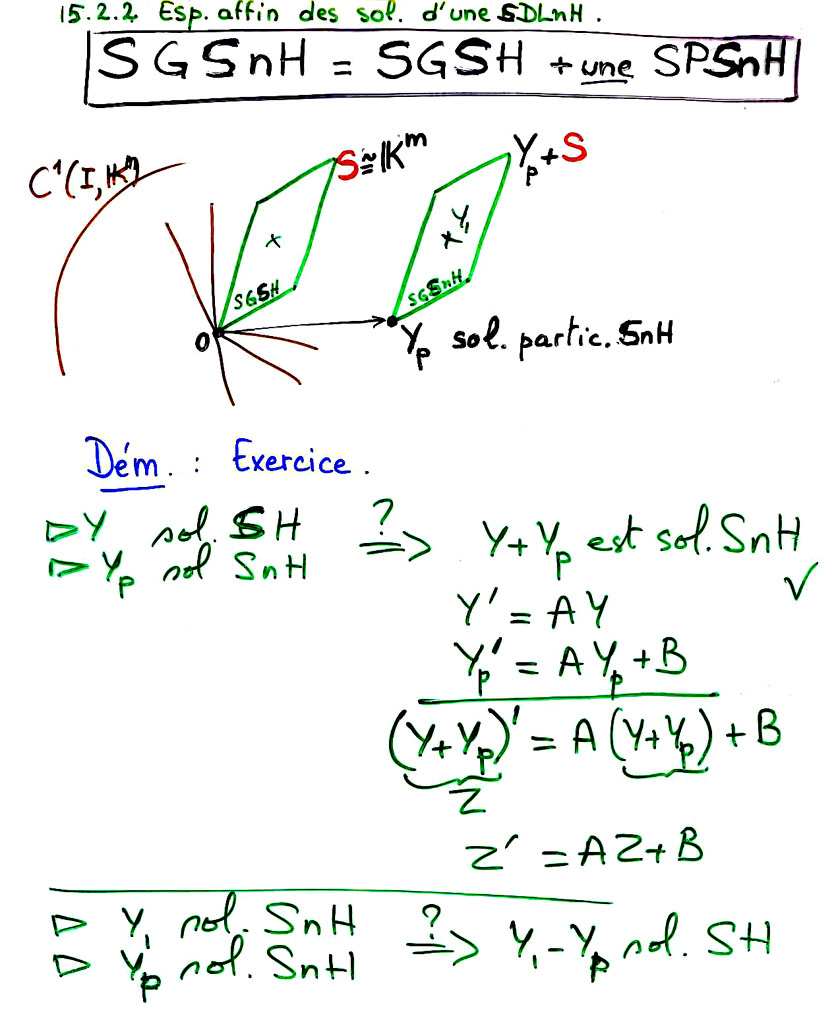 15.2.2 Esp. affin des sol. d'une SDLnH.
SGSnH = SGSH + une SPSnH
C¹(I, Kᵐ)
S ≅ Kᵐ
Yp + S
x
x Y₁
SGSH
SGSnH
O
Yp sol. partic. SnH
Dém. : Exercice.
▷ Y sol. SH ?⟹ Y + Yp est sol. SnH
▷ Yp sol SnH ✓
Y' = AY
Yp' = AYp + B
(Y+Yp)' = A(Y+Yp) + B
Z
Z' = AZ + B
▷ Y₁ sol. SnH ?⟹ Y₁ - Yp sol. SH
▷ Yp sol. SnH